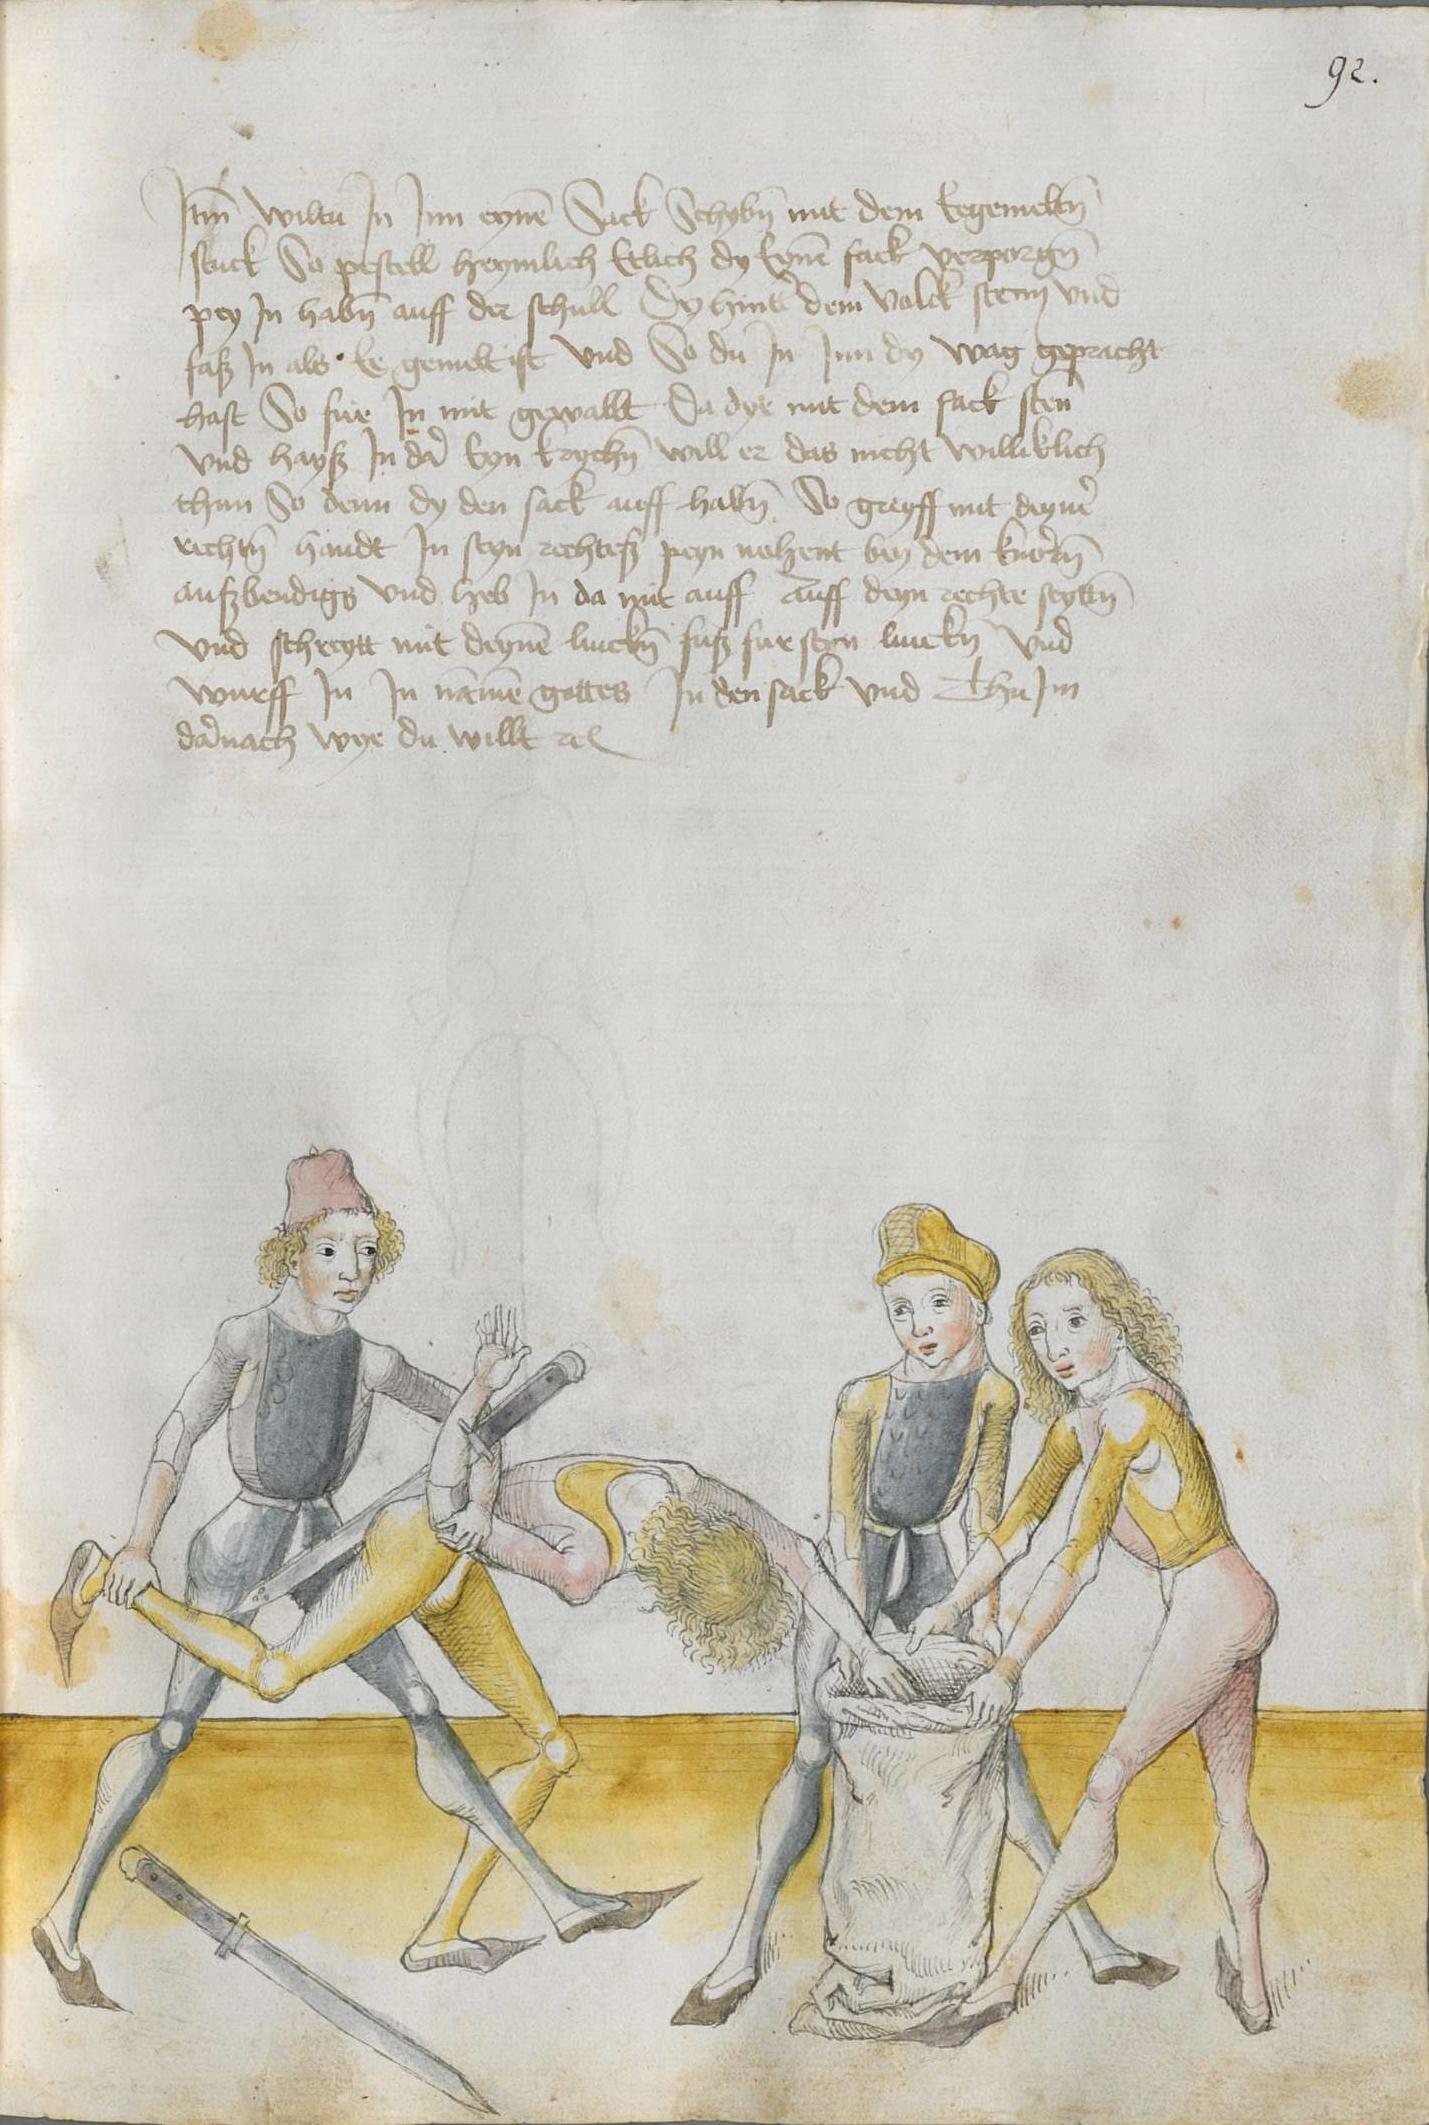 92.
Itm̄ wiltu In Inn eynē Sack Schybn̄ mit dem Eegemeltn̄
stuck So pestell heymlich Etlich dy Eynē sack verporgn̄
pey In habn̄ auff der schull Dy hintˀ dem volck stenn vnd
fasz In als Ee gemelt ist vnd So du In Inn dy wag gepracht
hast So füe In mit gewallt Da dye mit dem sack sten̄
vnd haysz In daˀ Eyn krychn̄ will er das nicht williklich
thun So denn dy den sack auff habn̄ So greyff mit deynˀ
rechtn̄ handt In seyn rechtesz peyn nahent bey dem
auszbendigs vnd heb In da mit auff auff deyn rechte seyttn̄
vnd schreytt mit deynē linckn̄ fusz fur seyn linckn̄ vnd
wurff In In namē gottes In den sack vnd Thu Im
daˀnach wye du willt rcͣ